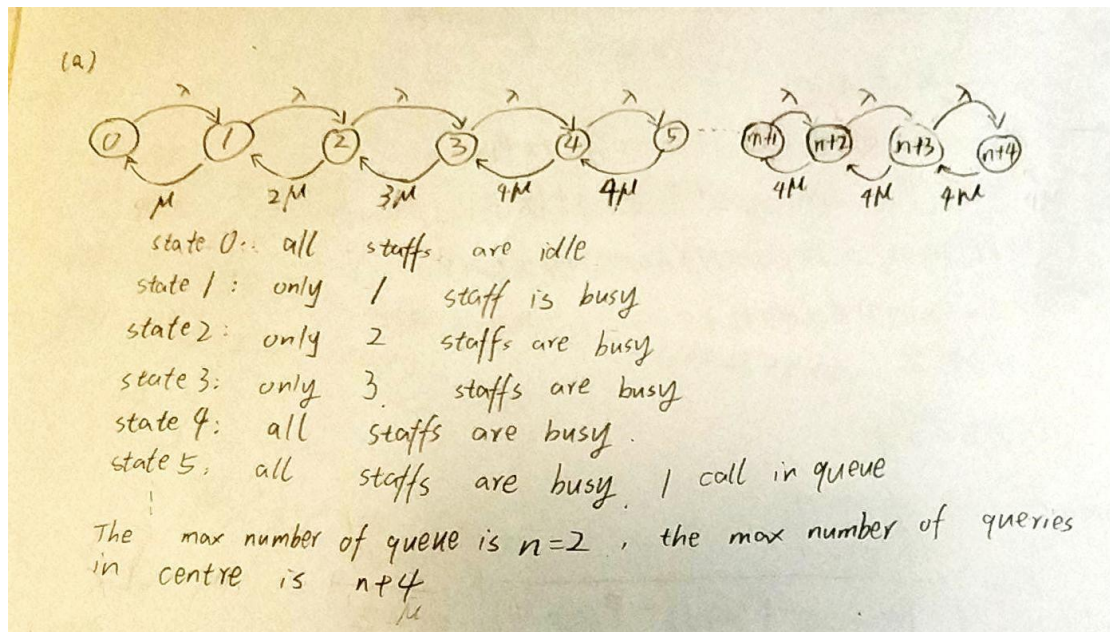 (a)
λ λ λ λ λ λ λ λ
0 1 2 3 4 5 ...... n+1 n+2 n+3 n+4
μ 2μ 3μ 4μ 4μ 4μ 4μ 4μ
state 0: all staffs are idle
state 1: only 1 staff is busy
state 2: only 2 staffs are busy
state 3: only 3 staffs are busy
state 4: all staffs are busy.
state 5: all staffs are busy, 1 call in queue
The max number of queue is n=2, the max number of queries
in centre is n+4
μ